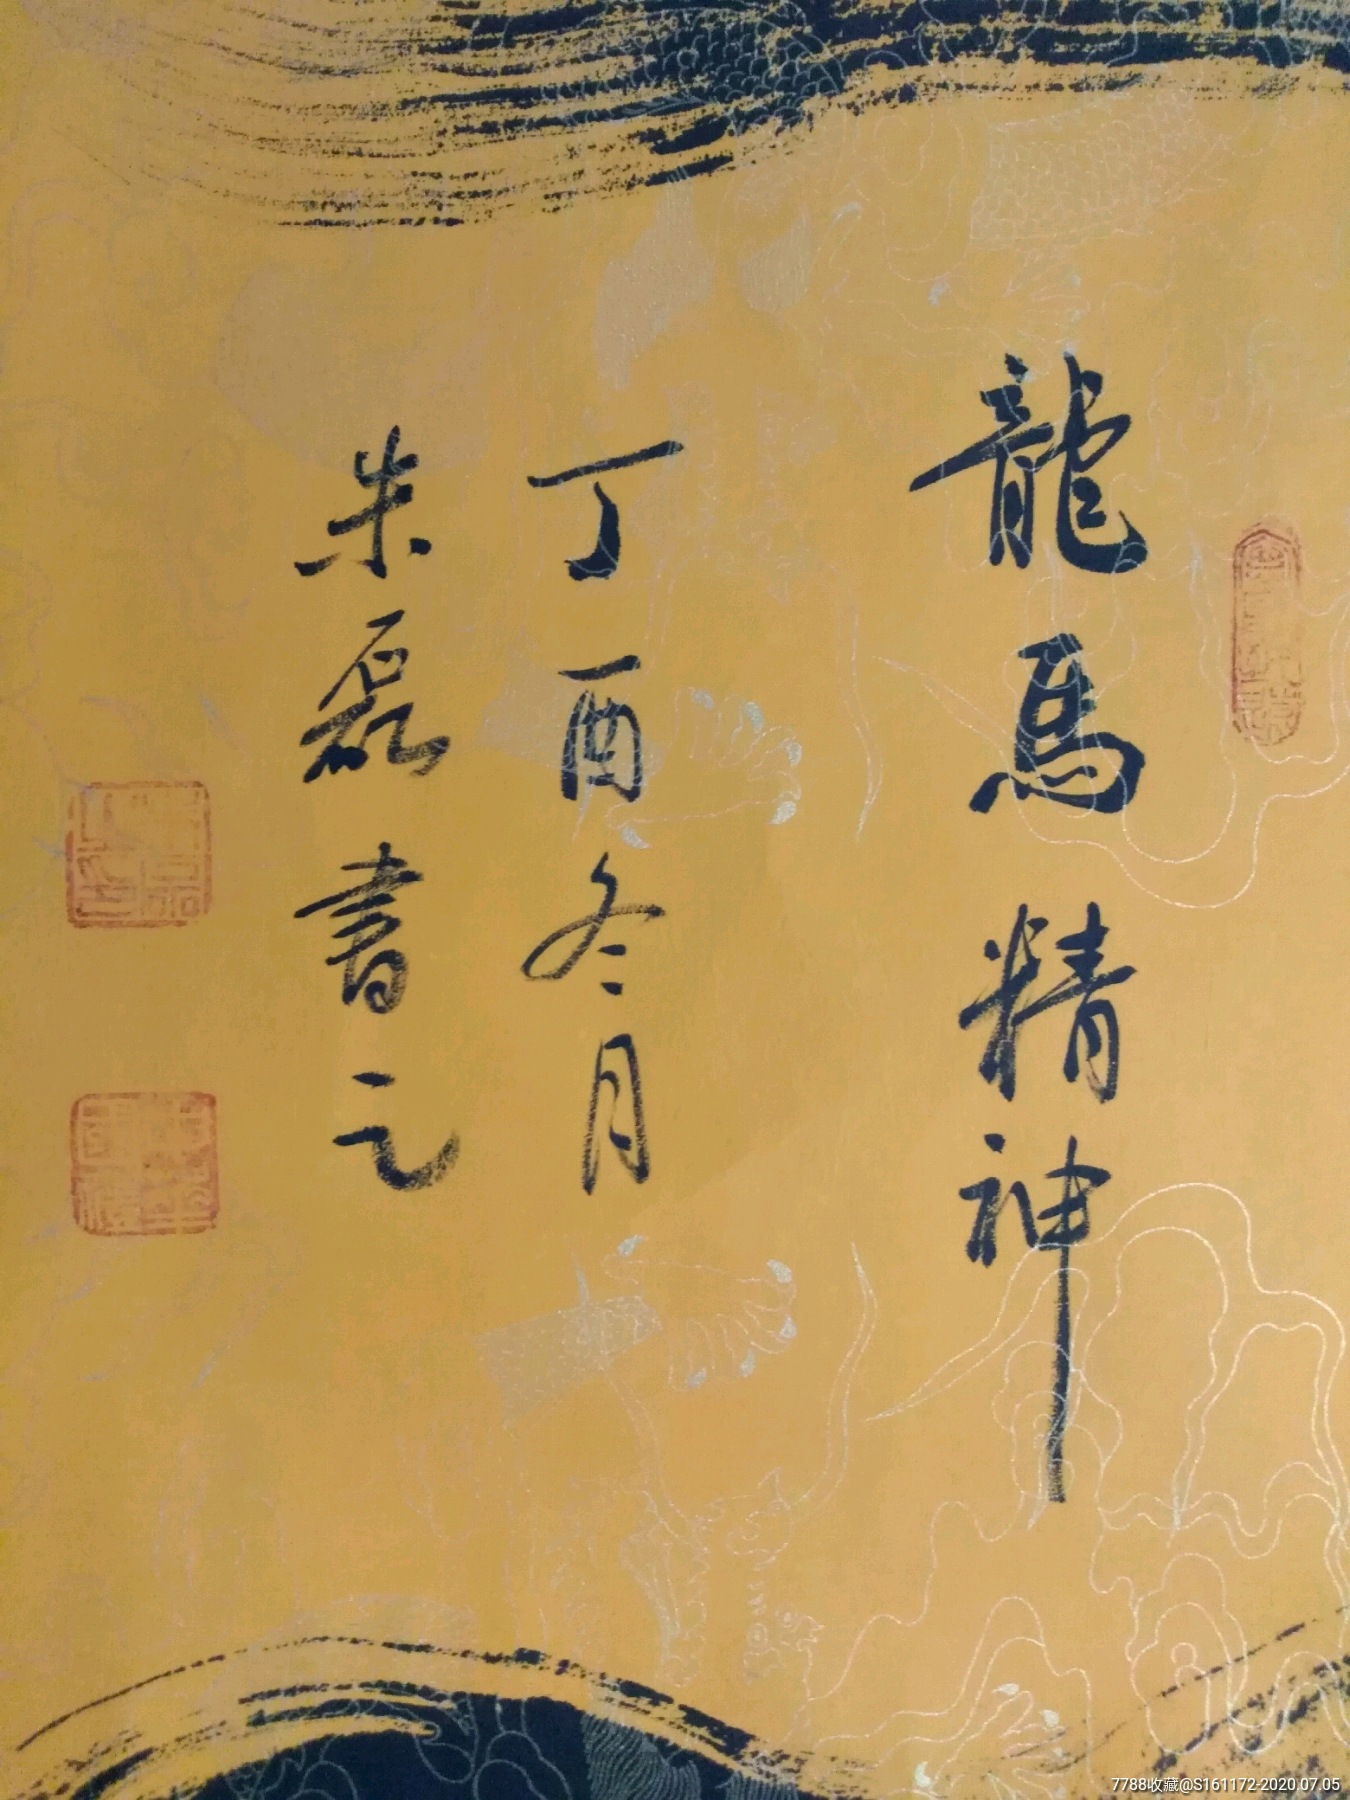 龍馬精神
丁酉冬月
朱磊書之
7788收藏@S161172-2020.07.05